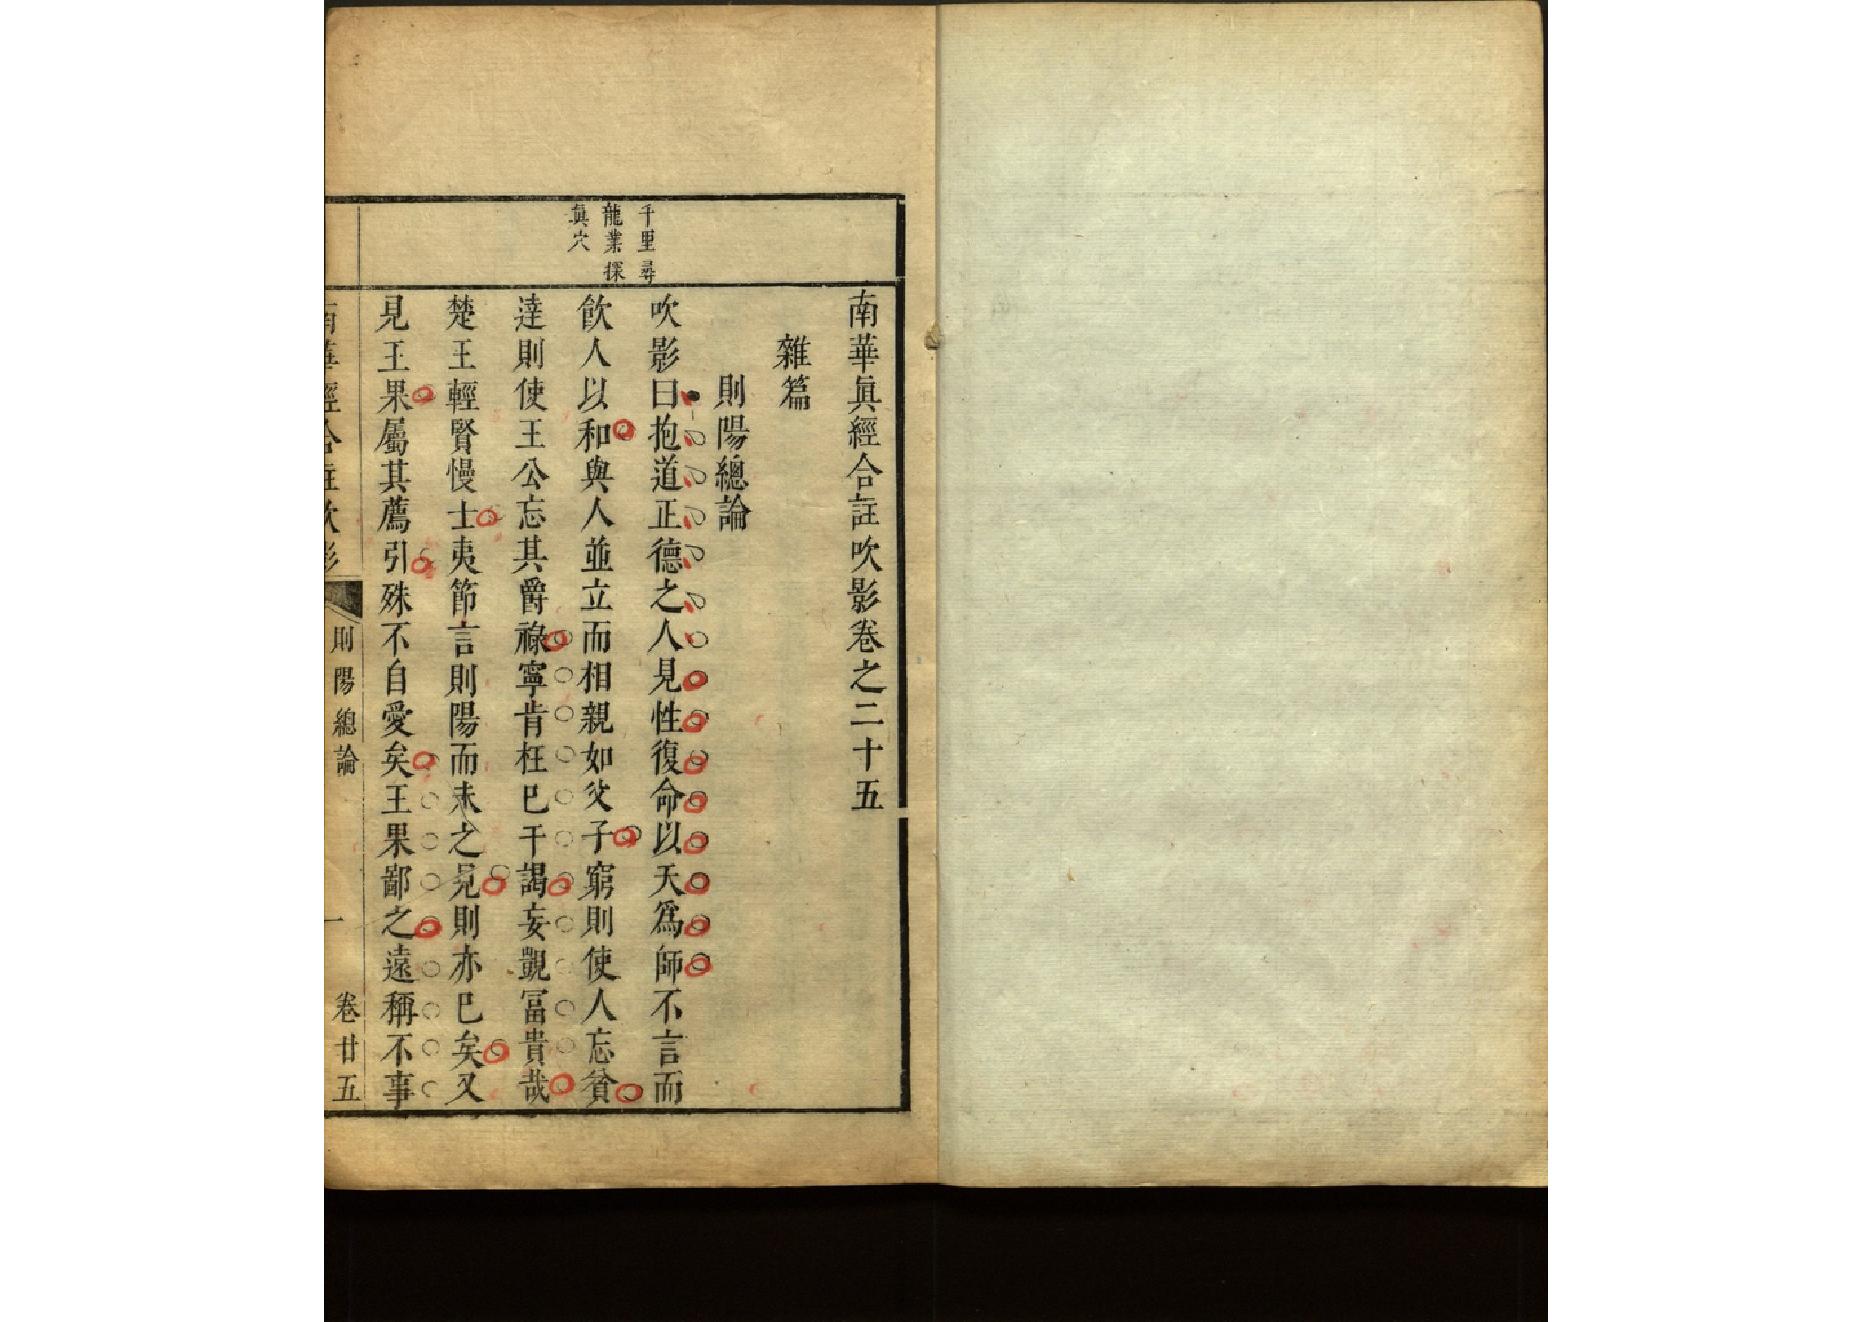 南華眞經合註吹影卷之二十五
雜篇
則陽總論
千里尋
龍業探
眞穴
吹影曰抱道正德之人見性復命以天爲師不言而
飲人以和與人並立而相親如父子窮則使人忘貧
達則使王公忘其爵祿寧肯枉已干謁妄覬冨貴哉
楚王輕賢慢士夷節言則陽而未之見則亦已矣又
見王果屬其薦引殊不自愛矣王果鄙之遠稱不事
南華經合註吹影
則陽總論
一
卷廿五